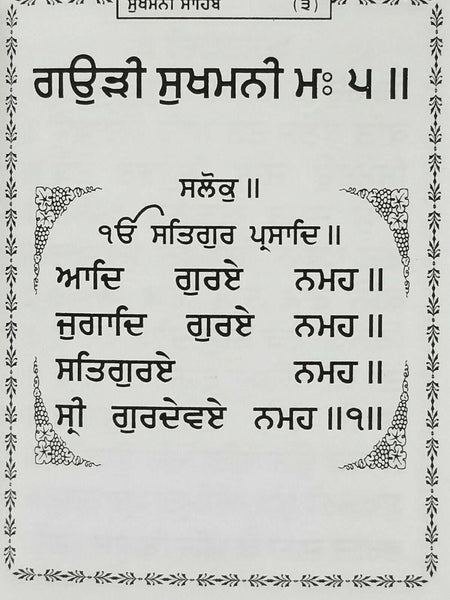 ਸੁਖਮਨੀ ਸਾਹਿਬ (੩)
ਗਉੜੀ ਸੁਖਮਨੀ ਮਃ ੫ ॥
ਸਲੋਕੁ ॥
ੴ ਸਤਿਗੁਰ ਪ੍ਰਸਾਦਿ ॥
ਆਦਿ ਗੁਰਏ ਨਮਹ ॥
ਜੁਗਾਦਿ ਗੁਰਏ ਨਮਹ ॥
ਸਤਿਗੁਰਏ ਨਮਹ ॥
ਸ੍ਰੀ ਗੁਰਦੇਵਏ ਨਮਹ ॥੧॥